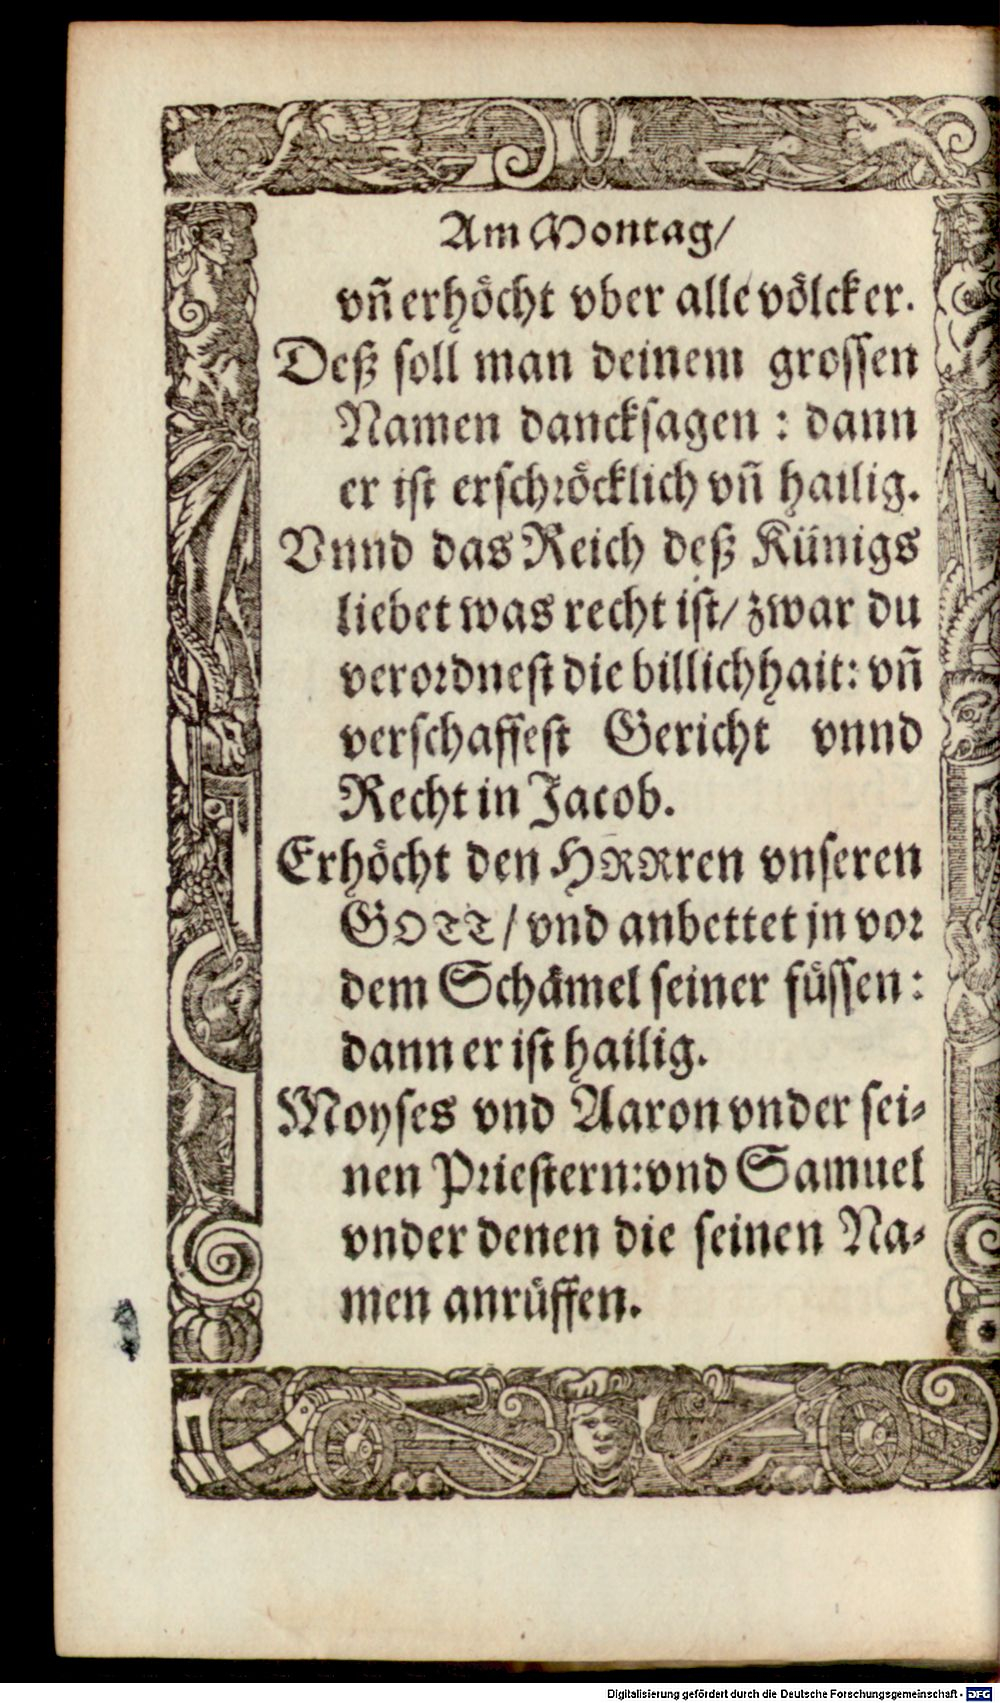 Am Montag/
vñ erhöcht vber alle völcker.
Deß soll man deinem grossen
Namen dancksagen : dann
er ist erschröcklich vñ hailig.
Vnnd das Reich deß Künigs
liebet was recht ist/ zwar du
verordnest die billichhait: vñ
verschaffest Gericht vnnd
Recht in Jacob.
Erhöcht den HRRren vnseren
GOTT/ vnd anbettet jn vor
dem Schämel seiner füssen:
dann er ist hailig.
Moyses vnd Aaron vnder sei-
nen Priestern: vnd Samuel
vnder denen die seinen Na-
men anrüffen.
Digitalisierung gefördert durch die Deutsche Forschungsgemeinschaft - DFG